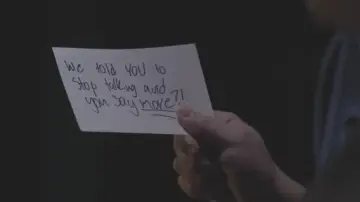 We told YOU to
Stop talking and
you say more?!